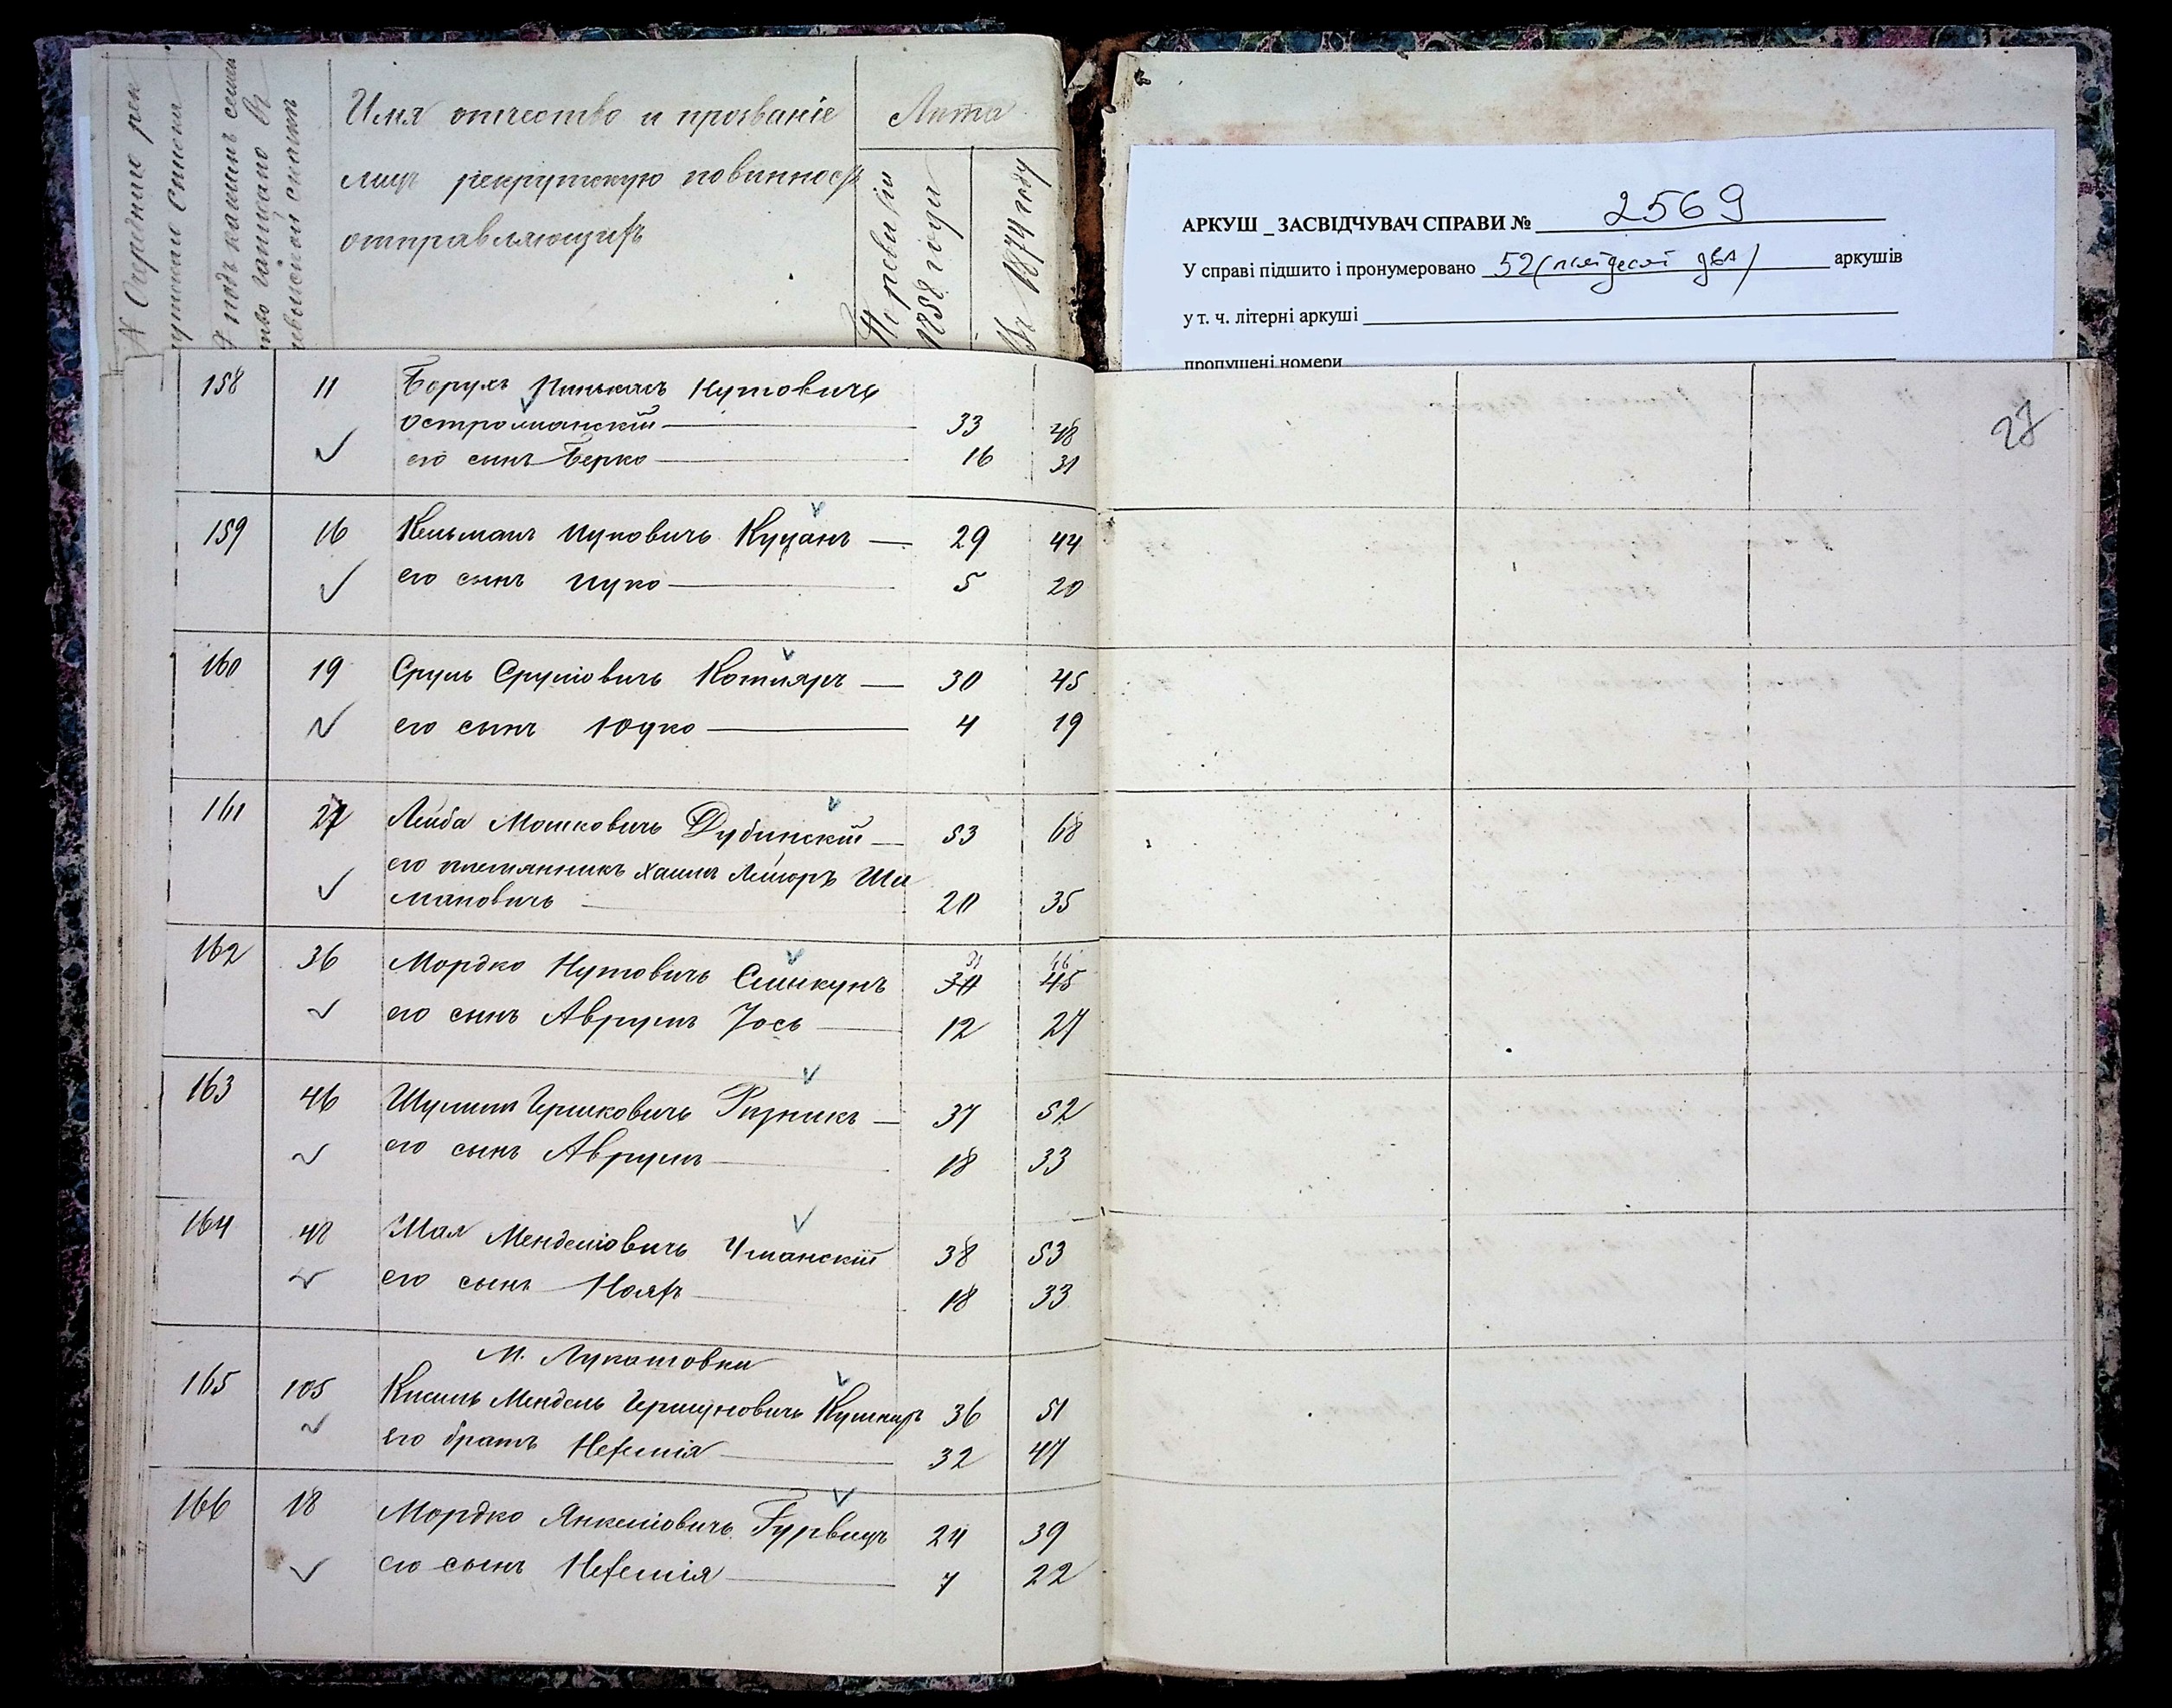 № Очередного рек
рутского списка
№ подъ какимъ семей
ство записано въ
ревизской сказкѣ
Имя отчество и прозваніе
лицъ рекрутскую повинность
отправляющихъ
Лѣта
По ревизіи
1858 года
Въ 1874 году
АРКУШ _ ЗАСВІДЧУВАЧ СПРАВИ № 2569
У справі підшито і пронумеровано 52 (пятдесят два) аркушів
у т. ч. літерні аркуші
пропущені номери
28
158 11 Борухъ Пинькасъ Нутовичъ
Остроманскій 33 48
его сынъ Берко 16 31
159 16 Кельманъ Ицковичъ Куцанъ 29 44
его сынъ Ицко 5 20
160 19 Сруль Срулiовичъ Котляръ 30 45
его сынъ Юдко 4 19
161 27 Лейба Мошковичъ Дубинскій 53 68
его племянникъ Хаимъ Лейзоръ Ши
мановичъ 20 35
31 46
162 36 Мордко Нутовичъ 30 45
его сынъ Аврумъ Іось 12 27
163 46 Шулимъ Гершковичъ Рѣзникъ 37 52
его сынъ Аврумъ 18 33
164 48 Мая Менделiовичъ Уманскій 38 53
его сынъ Нояхъ 18 33
М. Лукашовки
165 105 Кисиль Мендель Гершуновичъ Кушниръ 36 51
Его братъ Нехемія 32 47
166 18 Мордко Янкелiовичъ Гурвицъ 24 39
его сынъ Нехемія 7 22